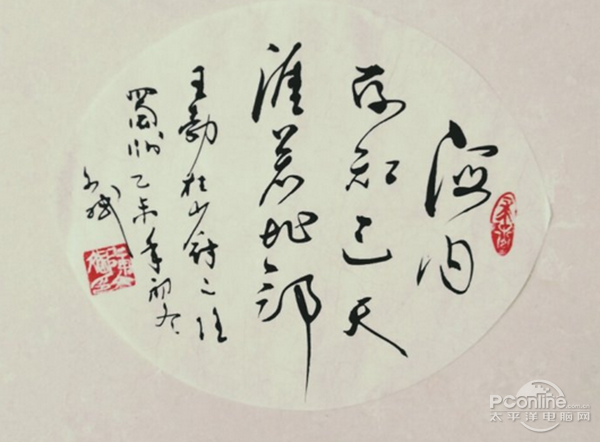 海内
存知己天
涯若比邻
王勃杜少府之任
蜀州乙未年初冬
PConline.com.cn
太平洋电脑网